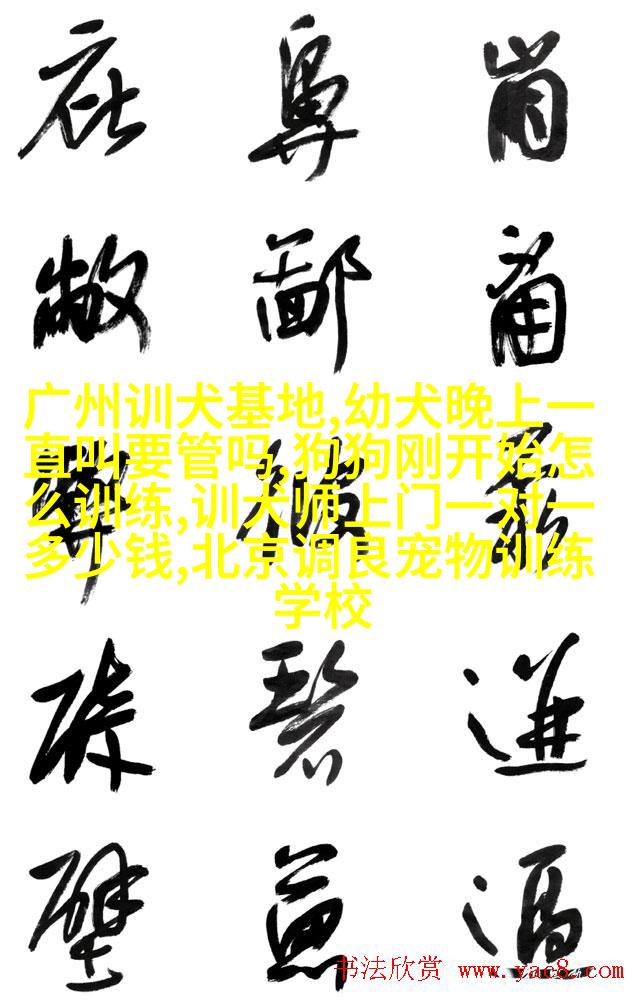 庇 鼻
敝 鄙
广州训犬基地,幼犬晚上一
直叫要管吗,狗狗刚开始怎
么训练,训犬师上门一对一
多少钱,北京调良宠物训练
学校
碧 迸
壁 逼
书法欣赏 www.yac8.com